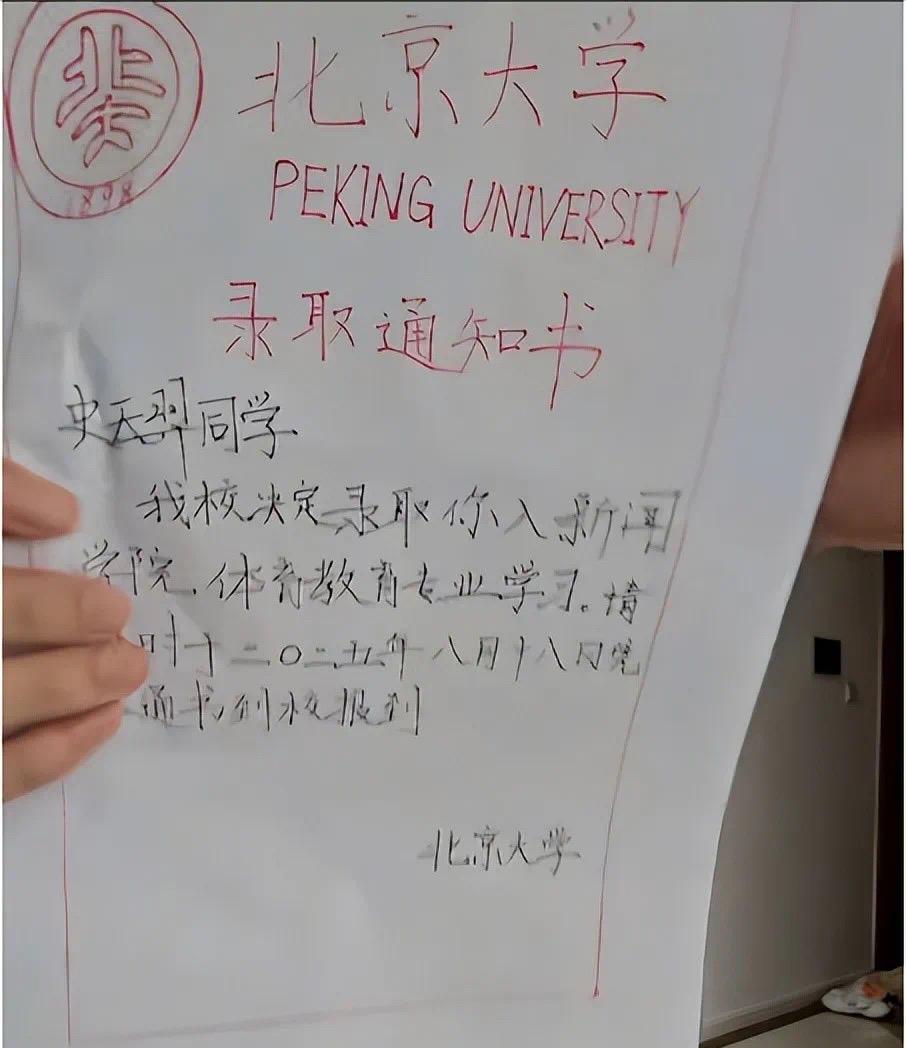 北京大学
1898
PEKING UNIVERSITY
录取通知书
史天羿同学
我校决定录取你入新闻
学院.体育教育专业学习。请
时于二〇二五年八月十八日凭
通书到校报到
北京大学